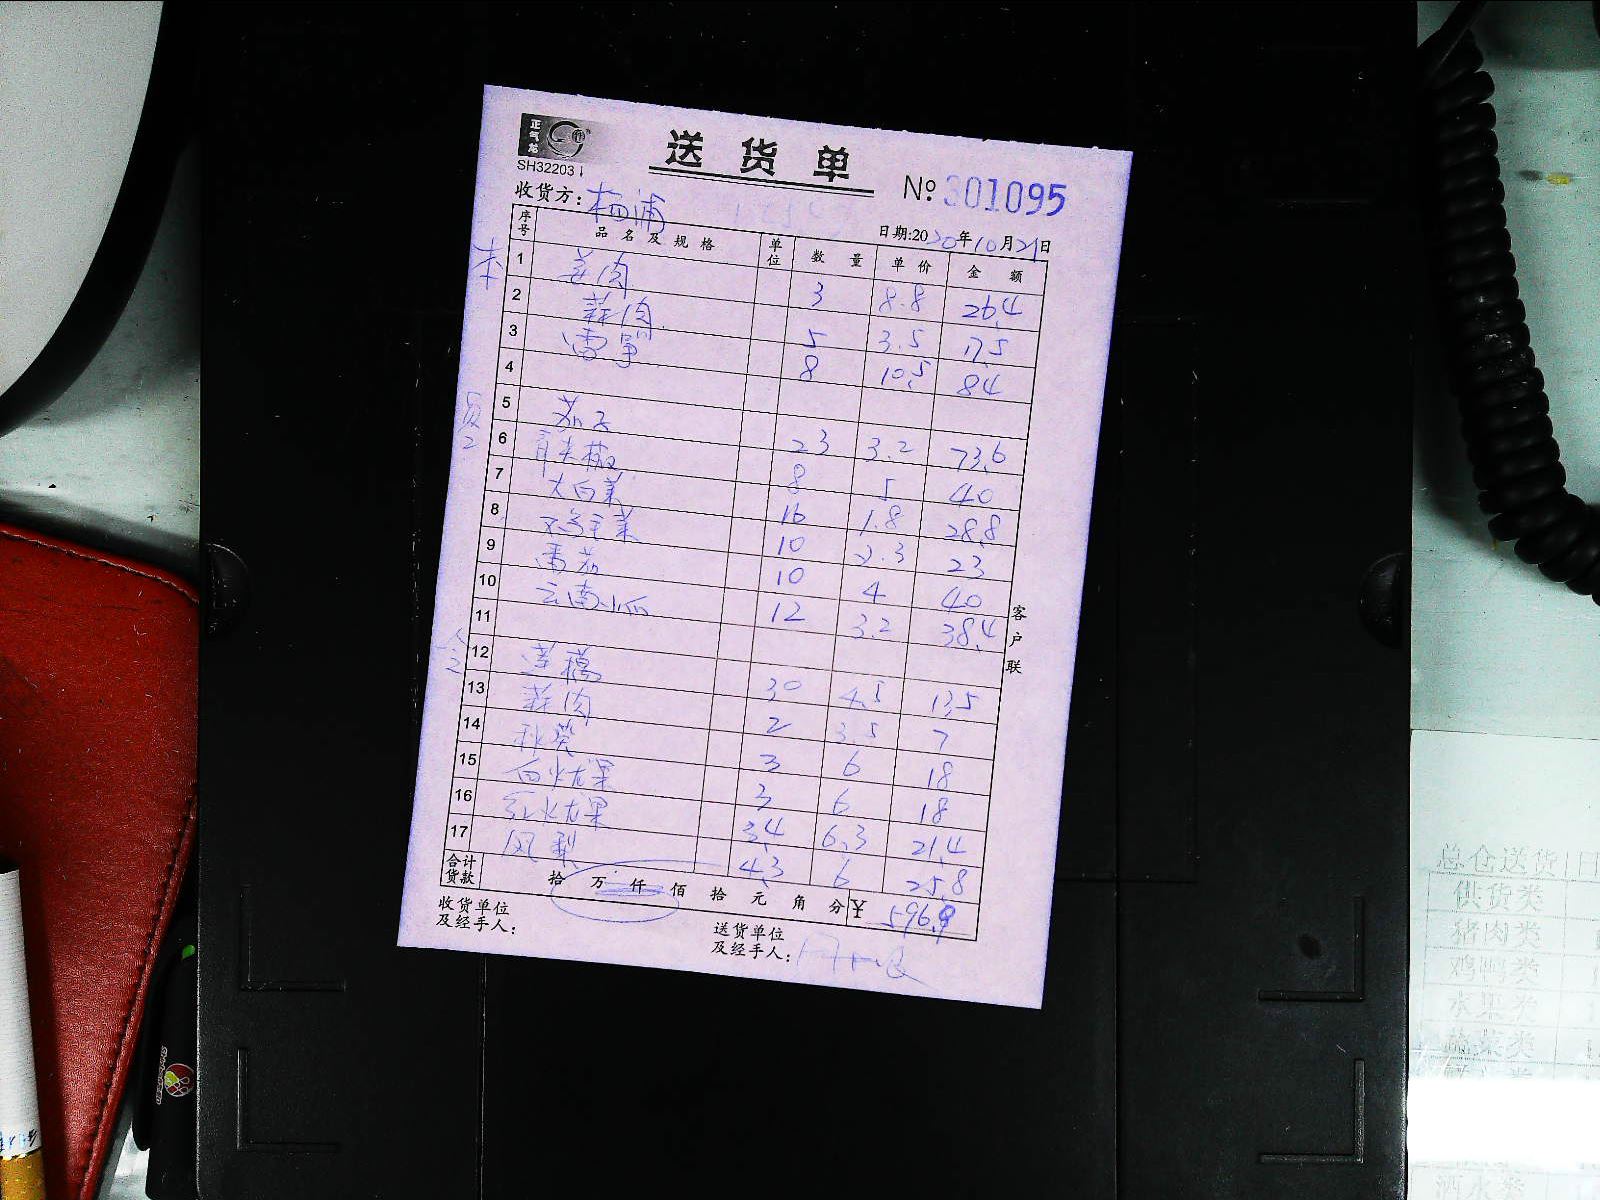 正气龙
送货单
SH32203
№ 301095
收货方: 杨浦
日期:2020年10月21日
序号 品名及规格 单位 数量 单价 金额
1 姜肉 3 8.8 26.4
2 蒜肉 5 3.5 17.5
3 8 10.5 84
4
员工
5 茄子 23 3.2 73.6
6 青尖椒 8 5 40
7 大白菜 16 1.8 28.8
8 10 2.3 23
9 番茄 10 4 40
10 云南小瓜 12 3.2 38.4
11
12 30 4.5 135
13 蒜肉 2 3.5 7
14 秋葵 3 6 18
15 白火龙果 3 6 18
16 红火龙果 3.4 6.3 21.4
17 凤梨 4.3 6 25.8
合计货款 拾 万 仟 佰 拾 元 角 分 ¥ 596.9
收货单位及经手人:
送货单位及经手人:
客户联
总仓送货
供货类
猪肉类
鸡鸭类
水果类
蔬菜类
酒水类